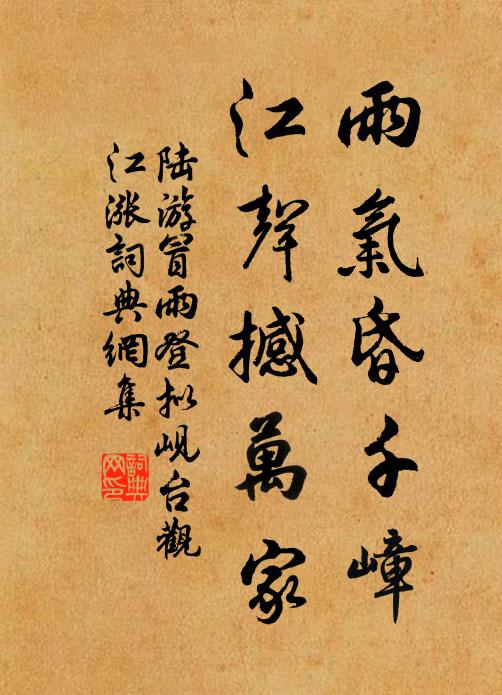 雨氣昏千嶂
江聲撼萬家
陆游冒雨登拟岘台觀
江涨詞典網集
詞典网印